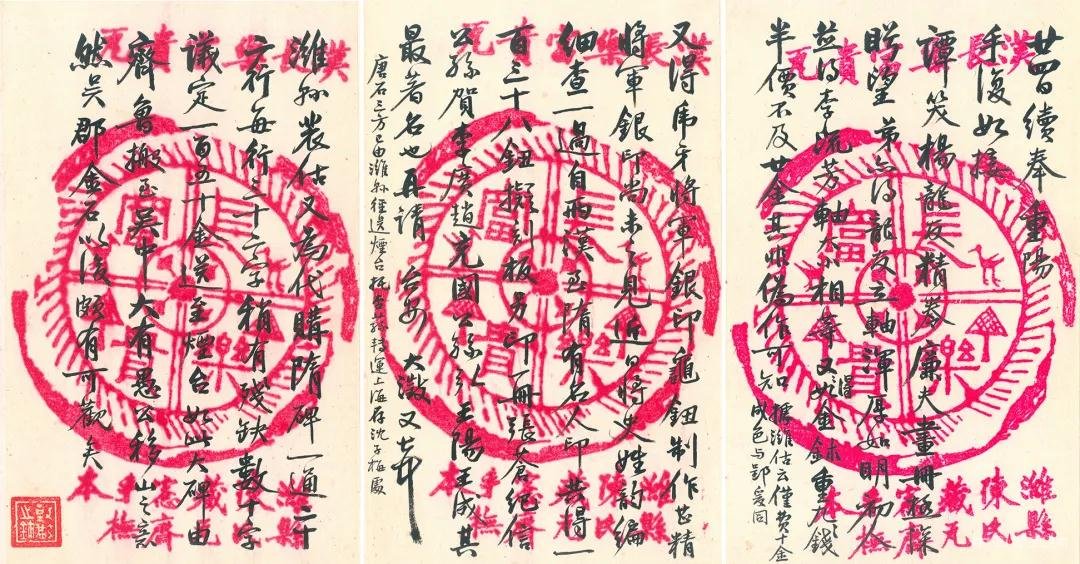 廿四日續奉 重陽
手復如接
譚笑楊龍友精卷 廉夫畫冊極深
盻望 弟亦得龍友立軸渾厚如明初人
並得李流芳軸亦不相 又得金鉼重九錢
半價不及廿金其非偽作可知 據濰估云僅費十金
成色与郢爰同
又得虎牙將軍銀印龜鈕制作甚精
將軍銀印尚未之見近日將史姓韵編
細查一過自兩漢至隋有名人印共得一
百三十八鈕擬刻板另印一冊張蒼紀信
公孫賀李廣趙充國公孫弘王陽王成其
最著名也再請 台安 大澂又頓
唐石三方已由濰縣徑送煙台托 轉運上海存沈子梅處
濰縣裴估又為代購隋碑一通二十
六行每行三十六字稍有殘缺數十字
議定一百五十金送至煙台如此大碑由
齊魯搬至吳中大有愚公移山之意
然吳郡金石以後頗有可觀矣
漢長樂富貴瓦
長樂富貴
濰縣陳氏藏瓦
愙齋手橅本